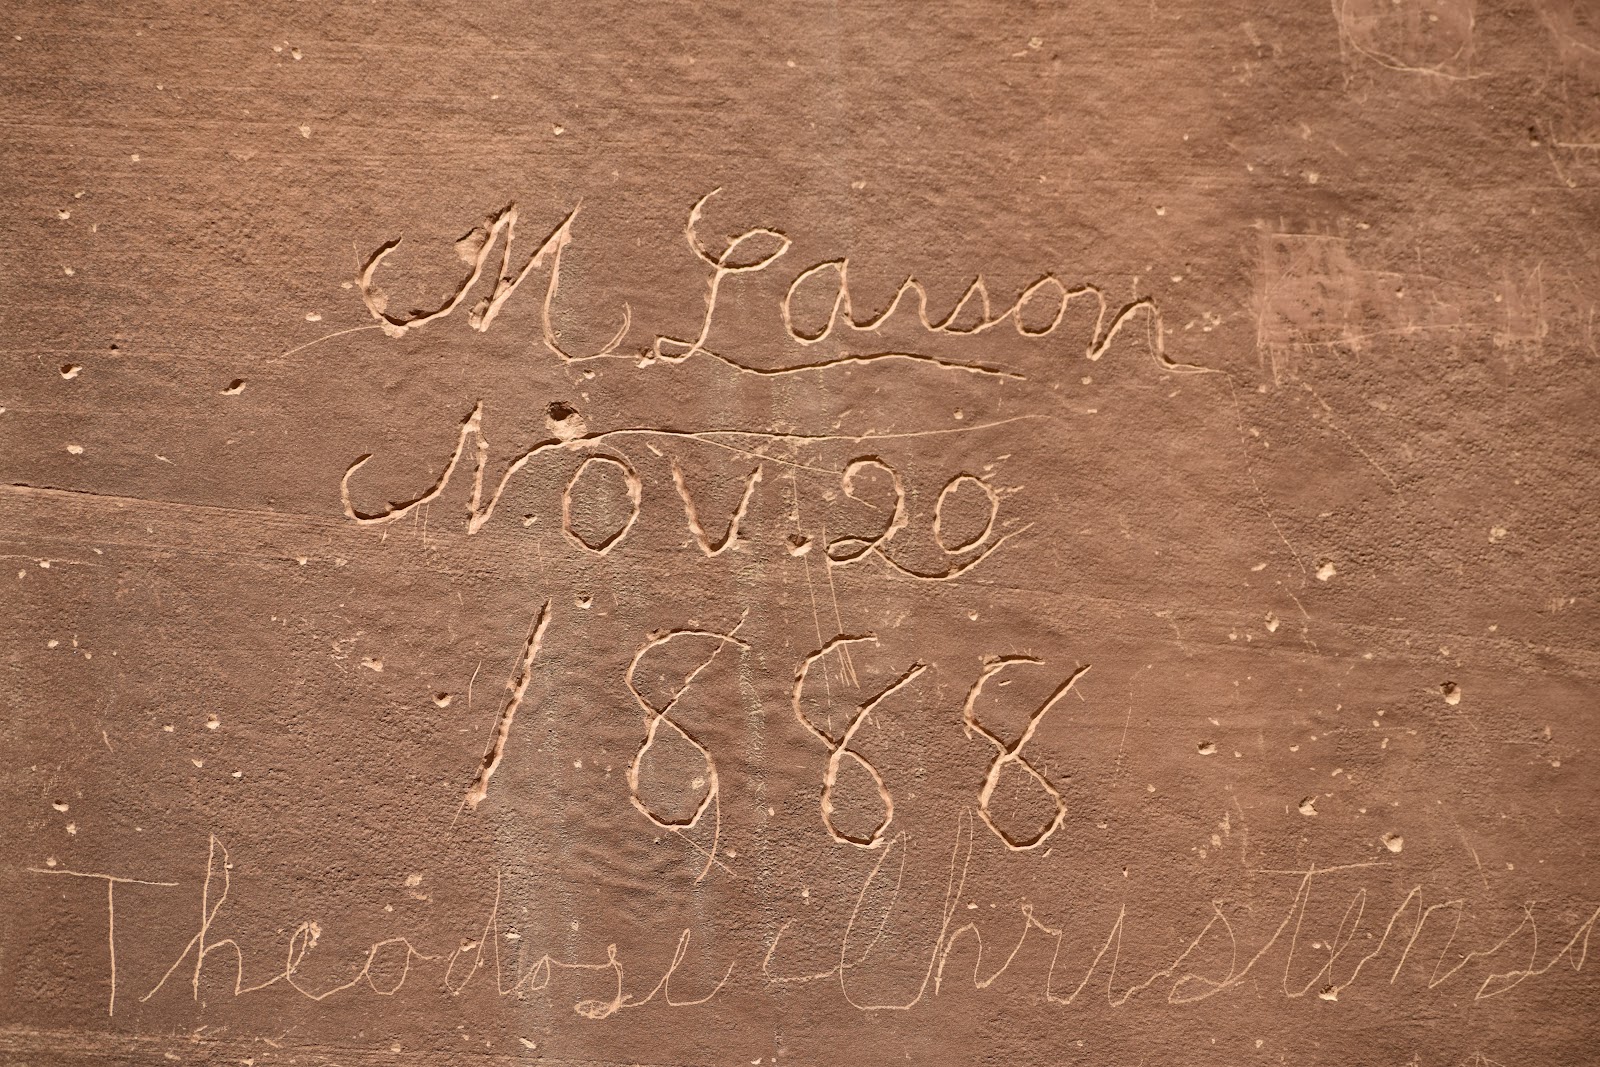 M Larson
Nov. 20
1888
Theodose Christenso